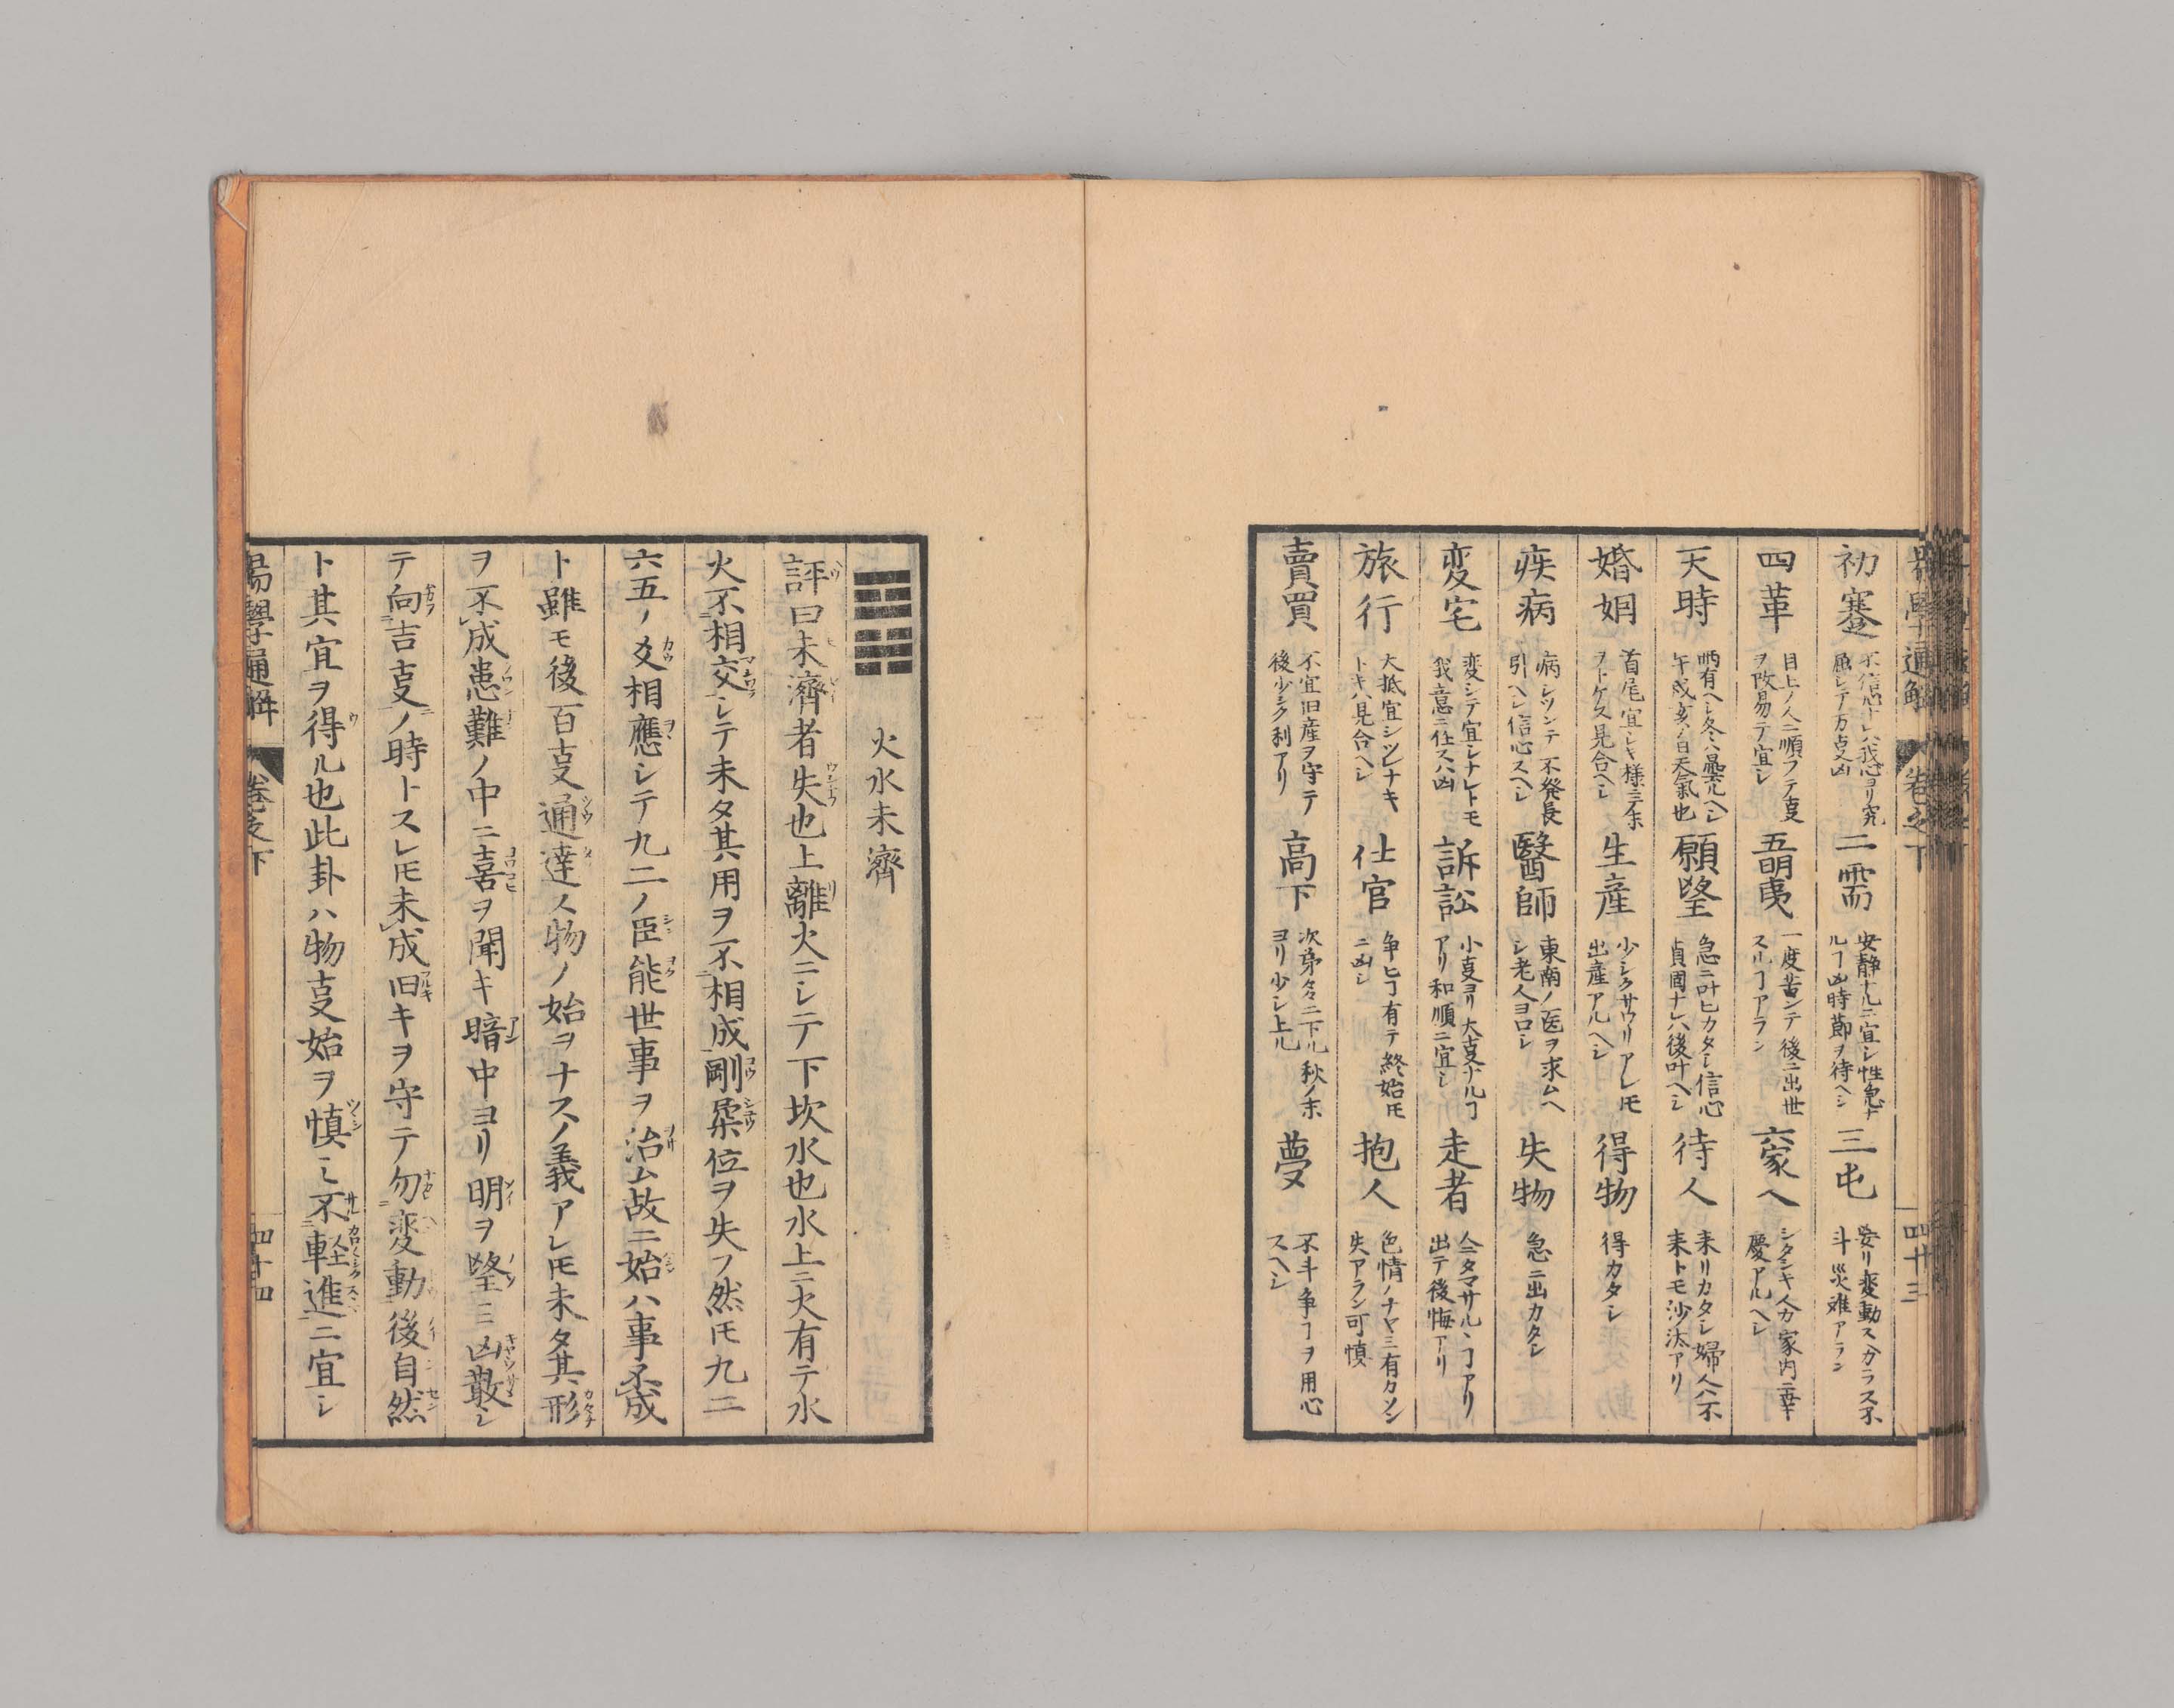 易學通解 卷之下 四十三
初蹇 不信心ナレハ我心ヨリ究
鬼シテ万叓凶
二需 安静ナルニ宜シ性急ナ
ルヿ凶時節ヲ待ヘシ
三屯 妄リ変動スヘカラス不
斗災难アラン
四革 目上ノ人ニ順フテ叓
ヲ改易テ宜シ
五明夷 一度苦シテ後ニ出世
スルヿアラン
六家人 シタシキ人分家内ニ幸
慶アルヘシ
天時 晒有ヘシ冬ハ曇ルヘシ
午戌亥ノ日天氣也
願望 急ニ叶ヒカタシ信心
貞固ナレハ後叶ヘシ
待人 来リカタシ婦人ハ不
来トモ沙汰アリ
婚姻 首尾宜シキ様ニテ末
ヲトケス見合ヘシ
生產 少シクサワリアレ𪜈
出産アルヘシ
得物 得カタシ
疾病 病レツンテ不発長
引ヘシ信心スヘシ
醫師 東南ノ医ヲ求ムヘ
シ老人ヨロシ
失物 急ニ出カタシ
変宅 変シテ宜シナレトモ
我意ニ任スハ凶
訴訟 小叓ヨリ大叓ナルヿ
アリ和順ニ宜シ
走者 人ニタマサルヽヿアリ
出テ後悔アリ
旅行 大抵宜シツレナキ
トキハ見合ヘシ
仕官 争ヒヿ有テ終始𪜈
ニ凶シ
抱人 色情ノナヤミ有カソン
失アラン可慎
賣買 不宜旧産ヲ守テ
後少シク利アリ
高下 次第々々ニ下ル秋ノ末
ヨリ少シ上ル
夢 不斗争ヿヲ用心
スヘシ
火水未濟
評曰未濟者失也上離火ニシテ下坎水也水上ニ火有テ水
火不相交シテ未タ其用ヲ不相成剛柔位ヲ失フ然𪜈九二
六五ノ爻相應シテ九二ノ臣能世事ヲ治ム故ニ始ハ事不成
ト雖モ後百叓通達ス物ノ始ヲナスノ義アレ𪜈未タ其形
ヲ不成患難ノ中ニ喜ヲ聞キ暗中ヨリ明ヲ望ミ凶散シ
テ向吉叓ノ時トスレ𪜈未成旧キヲ守テ勿変動後自然
ト其宜ヲ得ル也此卦ハ物叓始ヲ慎ミ不軽進ニ宜シ
易學通解 卷之下 四十四